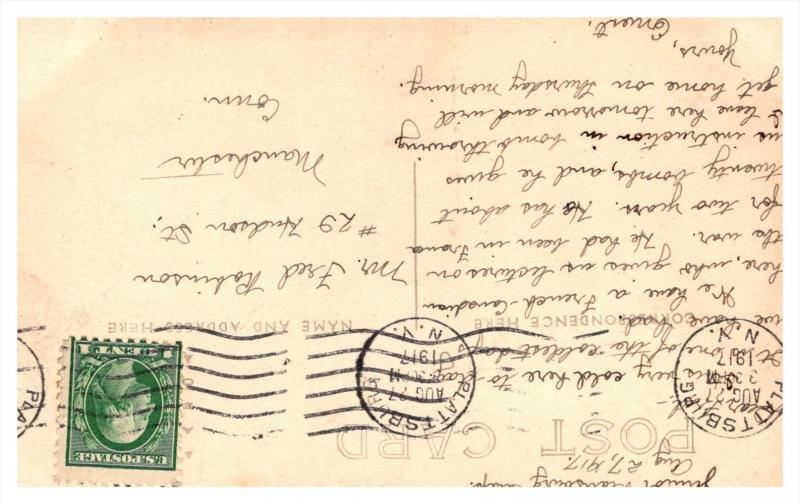 Junior Plattsburg Camp.
Aug 27, 1917.
POST CARD
Dear
It is very cold here to-day
one of the coldest days
we have had.
We have a French-Canadian
here, who gives us lectures on
the war. He had been in France
for two years. He has about
twenty bombs, and he gives
us instruction in bomb throwing
I leave here tomorrow and will
get home on Thursday morning.
Yours,
CORRESPONDENCE HERE
NAME AND ADDRESS HERE
Mr. Fred Robinson
#29 Hudson St.
Manchester
Conn.
PLATTSBURG
AUG 27
3 30 PM
1917
N.Y.
PLATTSBURG
AUG 27
3 30 PM
1917
N.Y.
PLA
U.S. POSTAGE
1 CENT 1